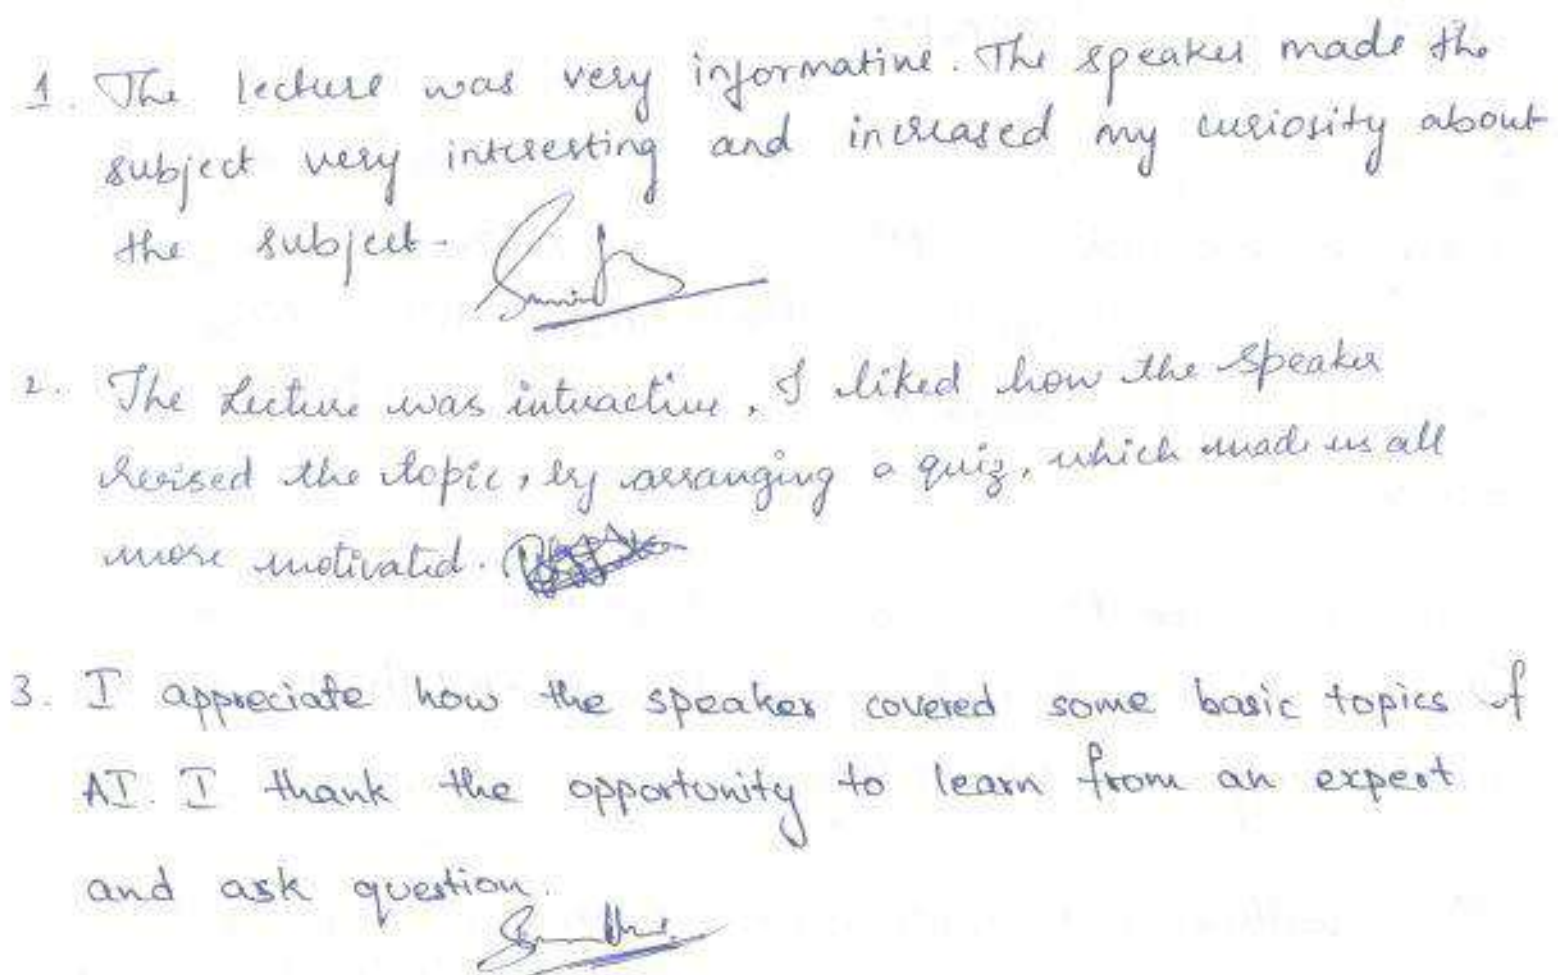 1. The lecture was very informative. The speaker made the
subject very interesting and increased my curiosity about
the subject.
2. The Lecture was interactive, I liked how the speaker
revised the topic, by arranging a quiz, which made us all
more motivated.
3. I appreciate how the speaker covered some basic topics of
AI. I thank the opportunity to learn from an expert
and ask question.